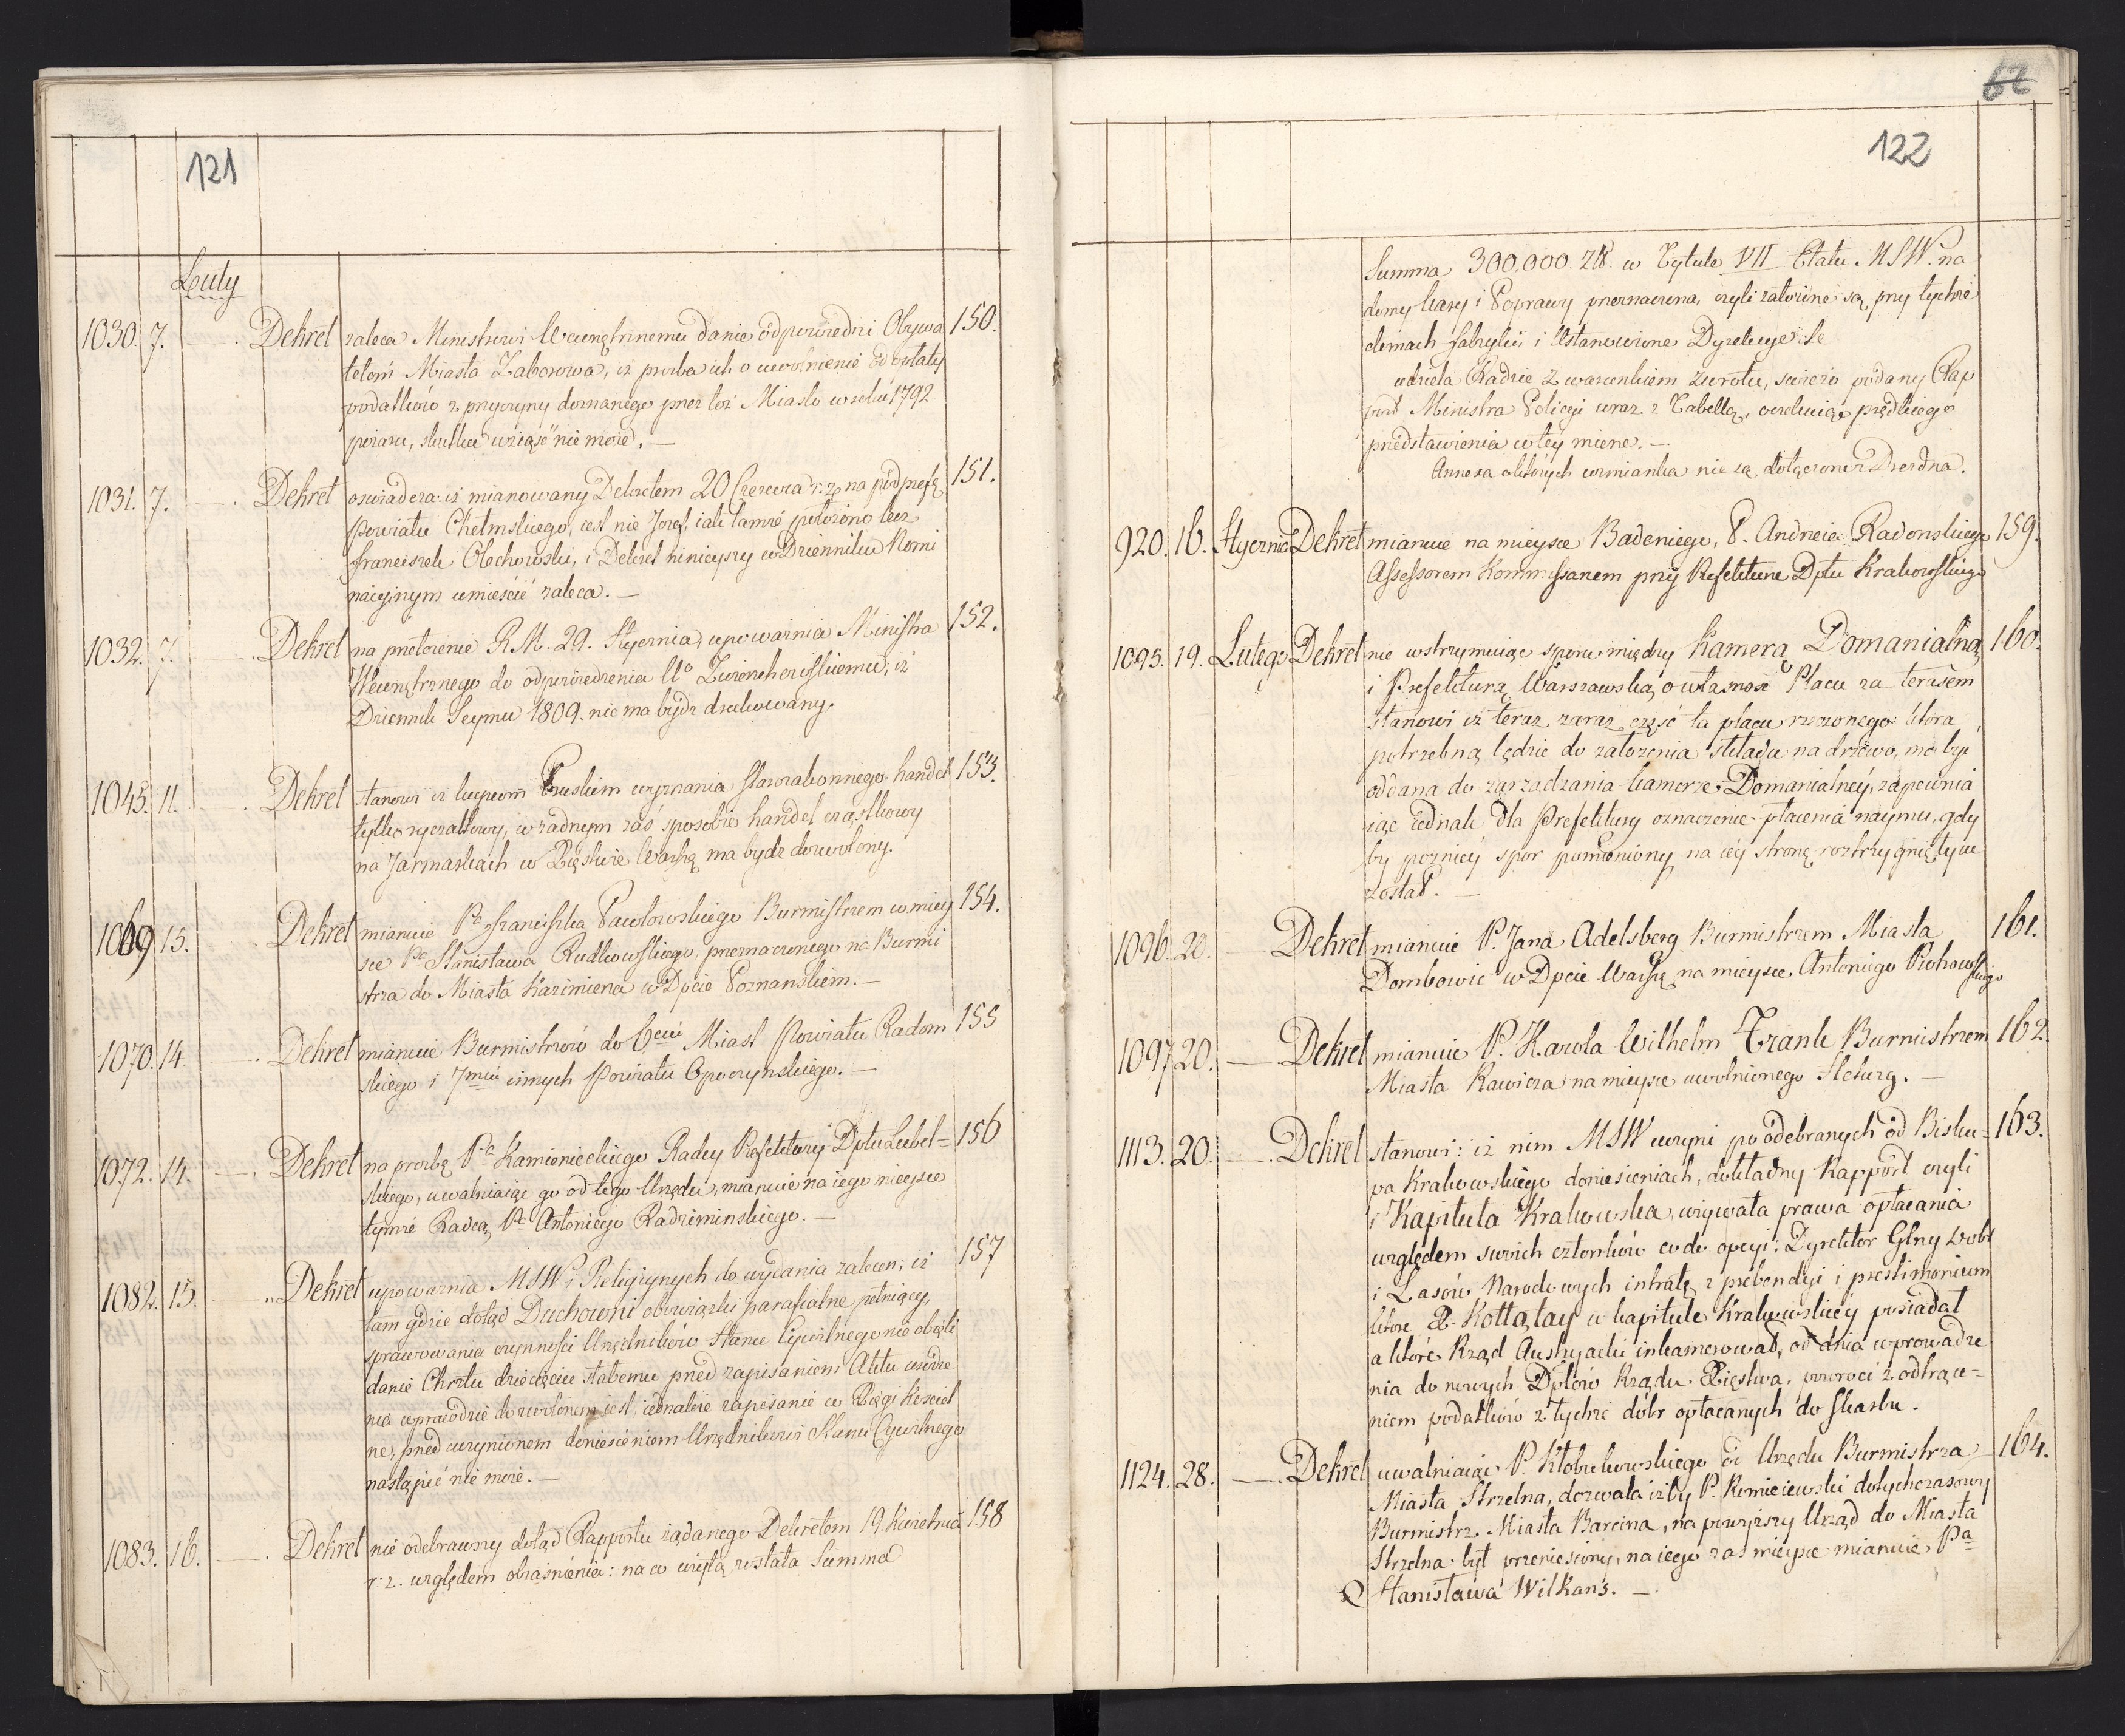 121
Luty
1030. 7. Dekret zaleca Ministrowi Wewnętrznemu danie odpowiedzi Obywa 150.
telom Miasta Zaborowa, iż prożba ich o uwolnienie od opłaty
podatków z przyczyny doznanego przez toż Miasto w roku 1792
pożaru, skutku wziąść nie może. —
1031. 7. Dekret oswiadcza: iż mianowany Dekretem 20 Czerwca r: z: na podprefą 151.
Powiatu Chełmskiego, iest nie Jozef, iak tamże położono lecz
Franciszek Olechowski, i Dekret ninieyszy w Dzienniku Nomi
nacyinym umieścić zaleca. —
1032. 7. Dekret na przełożenie R.M. 29. Stycznia, upoważnia Ministra 152.
Wewnętrznego do odpowiedzenia Uo Zwierzchowskiemu, iż
Dziennik Seymu 1809. nie ma bydz drukowany.
1045. 11. Dekret stanowi iż kupcom Pruskim wyznania starozakonnego handel 153.
tylko ryczałtowy, w żadnym zaś sposobie handel cząstkowy
na Jarmarkach w Xięstwie Warszą ma bydz dozwolony.
1069 15. Dekret mianuie Pa Franciszka Pawłowskiego Burmistrzem w miey 154.
sce Pa Stanisława Rudkowskiego, przeznaczonego na Burmi
strza do Miasta Kazimierza w Dpcie Poznanskiem. —
1070. 14. Dekret mianuie Burmistrzów do 6ciu Miast Powiatu Radom 155
skiego i 7miu innych Powiatu Opoczynskiego. —
1072. 14. Dekret na prozbę Pa Kamienieckiego Radcy Prefektury Dptu Lubel= 156
skiego, uwalniaiąc go od tego Urzędu, mianuie na iego mieysce
tymże Radcą, Pa Antoniego Radziminskiego. —
1082. 15. Dekret upoważnia MSW i Religiynych do wydania zalecen; iż 157
tam gdzie dotąd Duchowni obowiązki parafialne pełniący,
sprawowania czynności Urzędników Stanu Cywilnego nie obięli
danie Chrztu dziecięciu słabemu przed zapisaniem Aktu urodze
nia wprawdzie dozwolonem iest, iednakże zapisanie w Xięgi Kosciel
ne, przed uczynionem doniesieniem Urzędnikowi Stanu Cywilnego
nastąpić nie może. —
1083. 16. Dekret nie odebrawszy dotąd Rapportu żądanego Dekretem 19. Kwietnia 158
r: z. względem obiaśnienia: na co użytą została Summa
62
122
Summa 300.000. Zł. w Tytule VII Etatu MSW. na
domy kary i Poprawy przeznaczona, czyli założone są przy tychże
domach fabryki, i Ustanowione Dyrekcye. Se
udziela Radzie z warunkiem zwrotu, świeżo podany Rap
port Ministra Policyi wraz z Tabellą, oczekuiąc prędkiego
przedstawienia w tey mierze. —
Annexa o których wzmianka nie są dołączone z Drezdna.
920. 16. Stycznia Dekret mianuie na mieysce Badeniego, P. Andrzeia Radonskiego 159.
Assessorem Kommissarzem przy Prefekturze Dptu Krakowskiego
1095. 19. Lutego Dekret nie wstrzymuiąc sporu między Kamerą Domanialną 160.
i Prefekturą Warszawską, o własność Placu za terasem
stanowi iż teraz zaraz część ta placu rzeczonego która
potrzebną będzie do założenia składu na drzewo, ma być
oddana do zarządzania kamerze Domanialney, zapewnia
iąc iednak dla Prefektury oznaczenie płacenia naymu, gdy
by pozniey spor pomieniony na iéy stronę roztrzygnięty
został. —
1096. 20. Dekret mianuie P. Jana Adelsberg Burmistrzem Miasta 161.
Dombowic w Dpcie Warszą na mieysce, Antoniego Piotrowskiego
1097 20. Dekret mianuie P. Karola Wilhelm Trank Burmistrzem 162.
Miasta Rawicza na mieysce uwolnionego Sleturg. —
1113. 20. Dekret stanowi: iż nim MSW uczyni po odebranych od Bisku= 163.
pa Krakowskiego doniesieniach, dokładny Rapport czyli
i Kapituła Krakowska, używała prawa opłacania
względem swoich członków co do opcyi; Dyrektor Glny Dobr
i Lasów Narodowych intratę z prebendyi i prestimonium
które X. Kołłątay w kapitule Krakowskiéy posiadał
a które Rząd Austryacki inkamerował, od dnia wprowadze
nia do nowych Dptów Rządu Xięstwa, powroci z odtrące=
niem podatków z tychże dobr opłacanych do Skarbu.
1124. 28. Dekret uwalniaiąc P. Kłobukowskiego od Urzędu Burmistrza 164.
Miasta Strzelna, dozwala iżby P. Remieiewski dotychczasowy
Burmistrz Miasta Barcina, na powyższy Urząd do Miasta
Strzelna był przeniesiony, na iego zaś mieysce mianuie Pa
Stanisława Wilkans. —